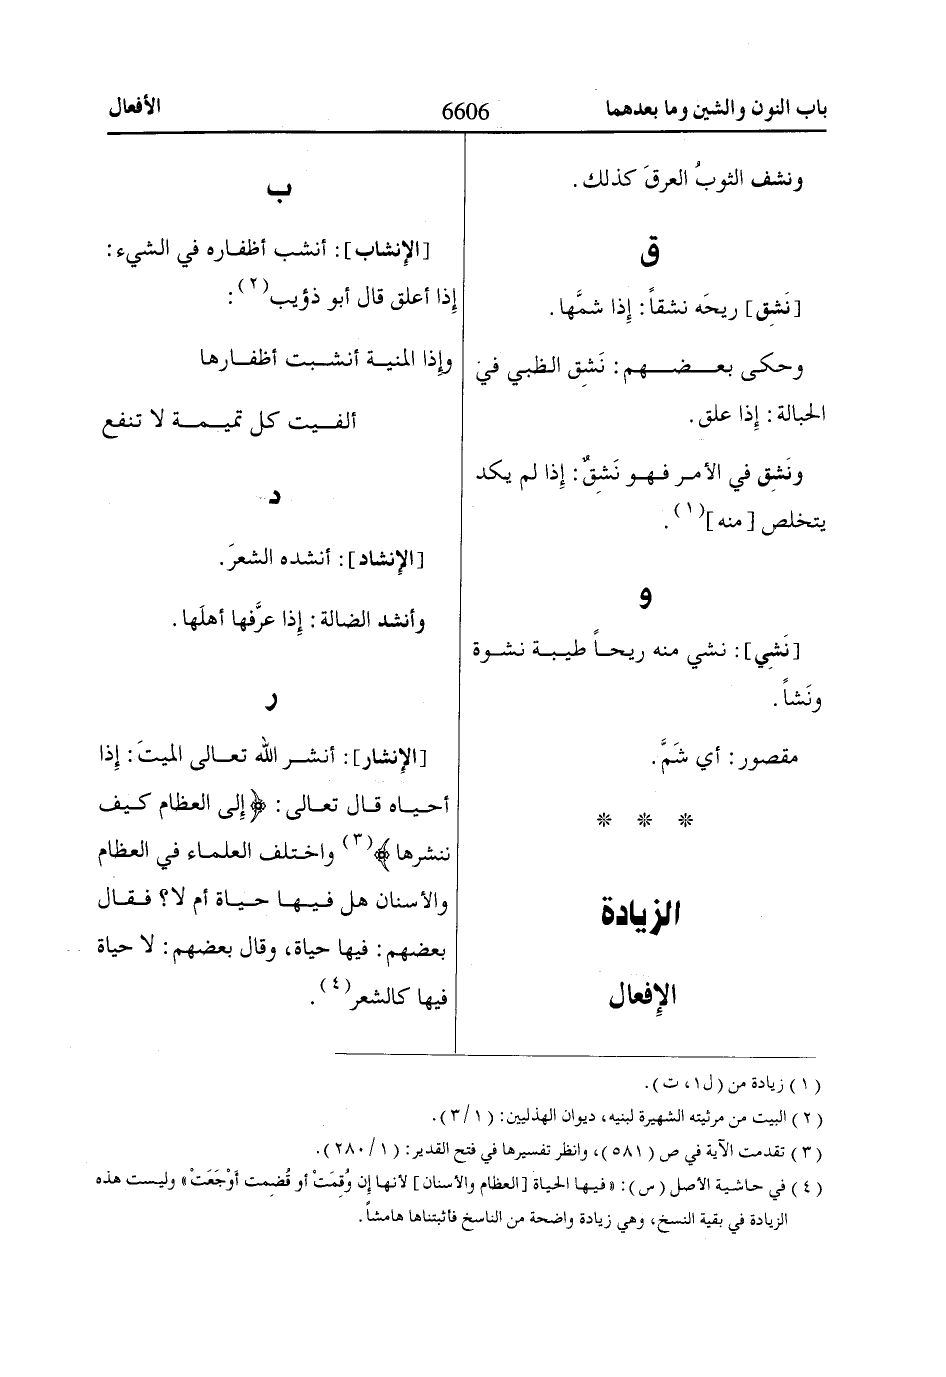 باب النون والشين وما بعدهما 6606 الأفعال
ونشف الثوبُ العرقَ كذلك.
ق
[نَشِق] ريحَه نشقاً: إِذا شمَّها.
وحكى بعـضـهم: نَشِق الظبي في
الحبالة: إِذا علق.
ونَشِق في الأمر فهو نَشِقٌ: إِذا لم يكد
يتخلص [منه](١).
و
[نَشِي]: نشي منه ريحاً طيبة نشوة
ونَشاً.
مقصور: أي شَمَّ.
* * *
الزيادة
الإِفعال
ب
[الإِنشاب]: أنشب أظفاره في الشيء:
إِذا أعلق قال أبو ذؤيب(٢):
وإِذا المنية أنشبت أظفارها
ألفيت كل تميمة لا تنفع
د
[الإِنشاد]: أنشده الشعرَ.
وأنشد الضالة: إِذا عرَّفها أهلَها.
ر
[الإِنشار]: أنشر الله تعالى الميتَ: إِذا
أحياه قال تعالى: ﴿إِلى العظام كيف
ننشرها﴾(٣) واختلف العلماء في العظام
والأسنان هل فيها حياة أم لا؟ فقال
بعضهم: فيها حياة، وقال بعضهم: لا حياة
فيها كالشعر(٤).
(١) زيادة من (ل١، ت).
(٢) البيت من مرثيته الشهيرة لبنيه، ديوان الهذليين: (٣/١).
(٣) تقدمت الآية في ص (٥٨١)، وانظر تفسيرها في فتح القدير: (٢٨٠/١).
(٤) في حاشية الأصل (س): «فيها الحياة [العظام والأسنان] لأنها إِن وُقِمَتْ أو قُضِمت أوْجَعَتْ» وليست هذه
الزيادة في بقية النسخ، وهي زيادة واضحة من الناسخ فأثبتناها هامشاً.